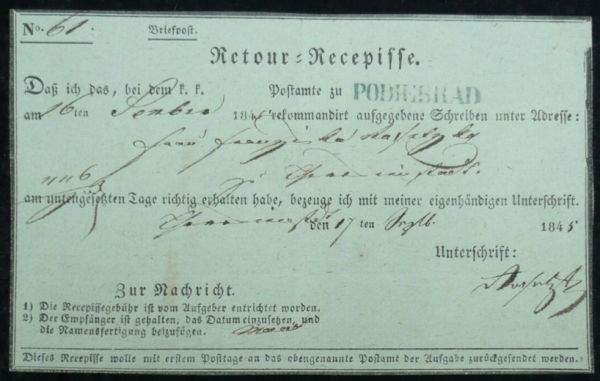 No. 61. Briefpost.
Retour-Recepisse.
Daß ich das, bei dem k. k. Postamte zu PODIEBRAD
am 16ten 1845 rekommandirt aufgegebene Schreiben unter Adresse:
am untengesetzten Tage richtig erhalten habe, bezeuge ich mit meiner eigenhändigen Unterschrift.
den 17ten Septb. 1845
Unterschrift:
Zur Nachricht.
1) Die Recepissegebühr ist vom Aufgeber entrichtet worden.
2) Der Empfänger ist gehalten, das Datum einzusetzen, und
die Namensfertigung beizufügen.
Dieses Recepisse wolle mit erstem Posttage an das obengenannte Postamt der Aufgabe zurückgesendet werden.